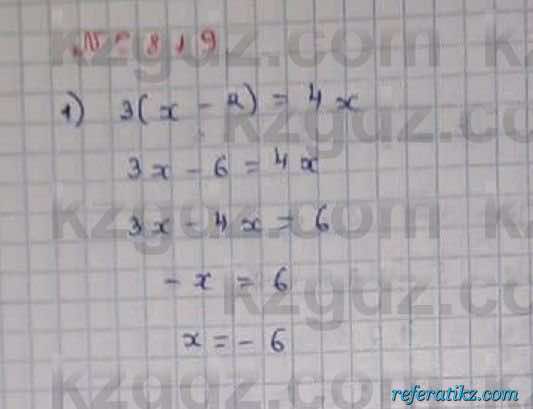 № 819
1) 3(x - 2) = 4x
3x - 6 = 4x
3x - 4x = 6
- x = 6
x = - 6
kzguz.com
referatikz.com